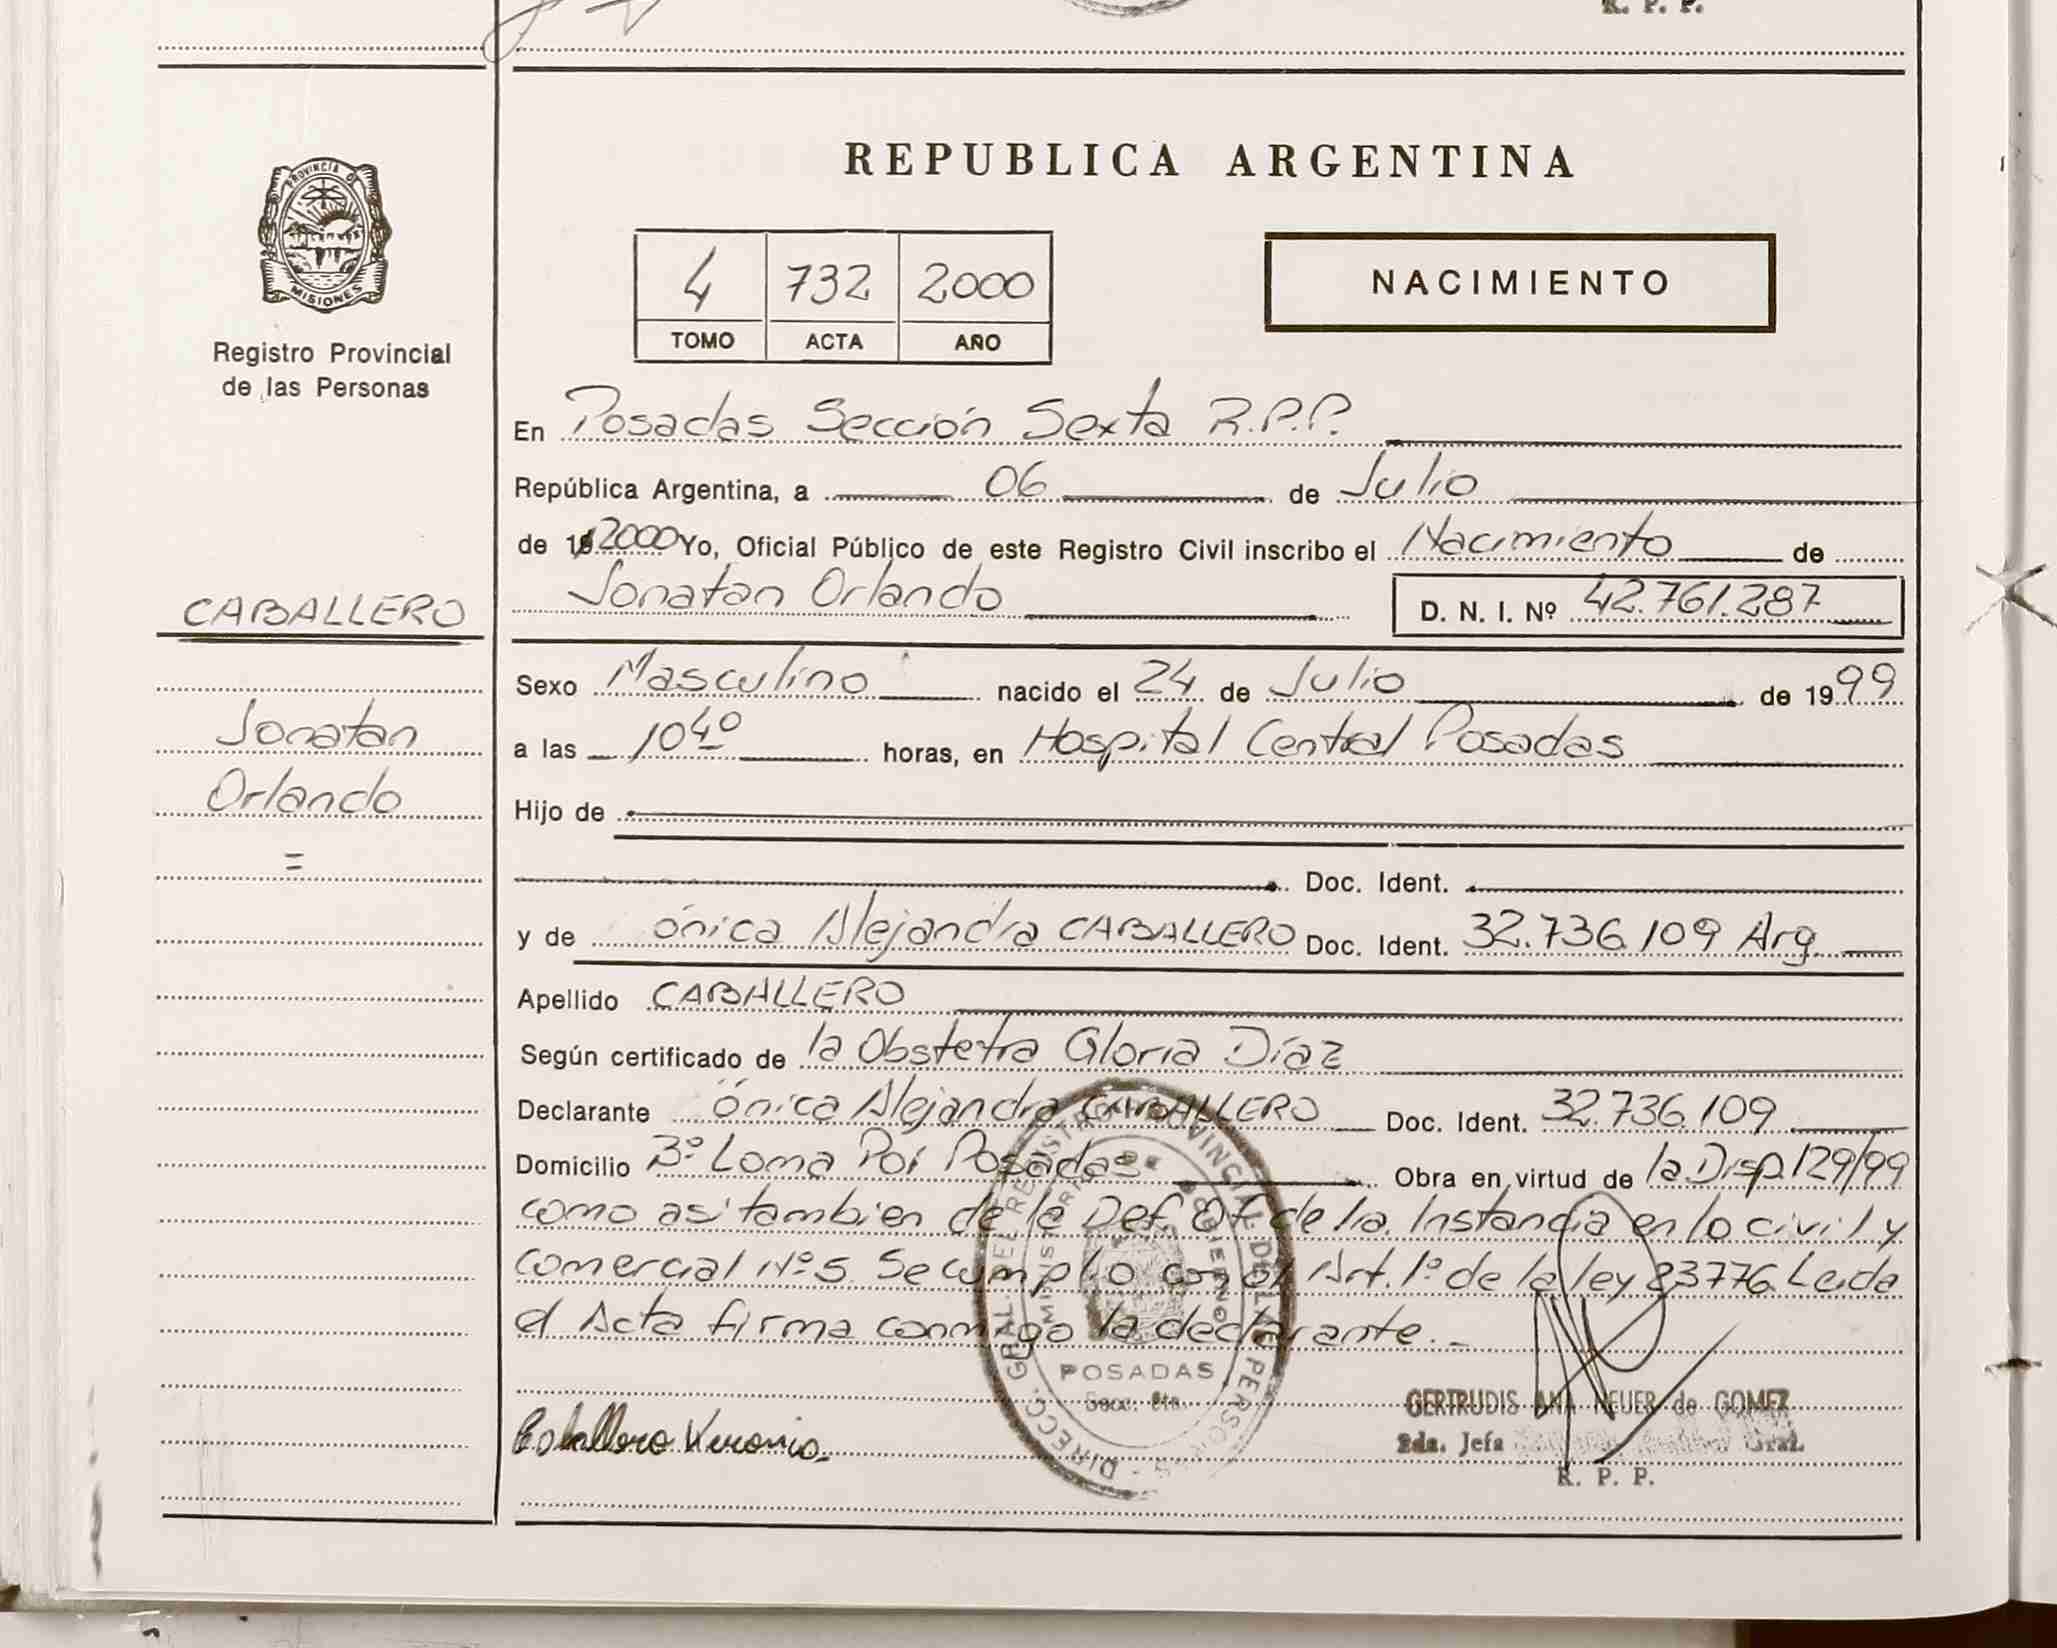 R. P. P.
PROVINCIA DE
MISIONES
Registro Provincial
de las Personas
CABALLERO
Jonatan
Orlando
=
REPUBLICA ARGENTINA
4 732 2000
TOMO ACTA AÑO
NACIMIENTO
En Posadas Sección Sexta R.P.P.
República Argentina, a 06 de Julio
de 19 2000 Yo, Oficial Público de este Registro Civil inscribo el Nacimiento de
Jonatan Orlando D. N. I. Nº 42.761.287
Sexo Masculino nacido el 24 de Julio de 1999
a las 10 40 horas, en Hospital Central Posadas
Hijo de
Doc. Ident.
y de ónica Alejandra CABALLERO Doc. Ident. 32.736.109 Arg.
Apellido CABALLERO
Según certificado de la Obstetra Gloria Díaz
Declarante ónica Alejandra CABALLERO Doc. Ident. 32.736.109
Domicilio Bº Loma Poi Posadas Obra en virtud de la Disp. 129/99
como asi tambien de la Def. Of de 1ra. Instancia en lo civil y
comercial Nº 5. Se cumplio con el Art. 1º de la ley 23776 Leida
el Acta firma conmigo la declarante.
DIRECC. GRAL. DEL REGISTRO PROVINCIAL DE LAS PERSONAS
MINISTERIO DE GOBIERNO
POSADAS
Secc. 6ta.
Caballero Veronica
GERTRUDIS ANA NEUER de GOMEZ
2da. Jefa Gral.
R. P. P.